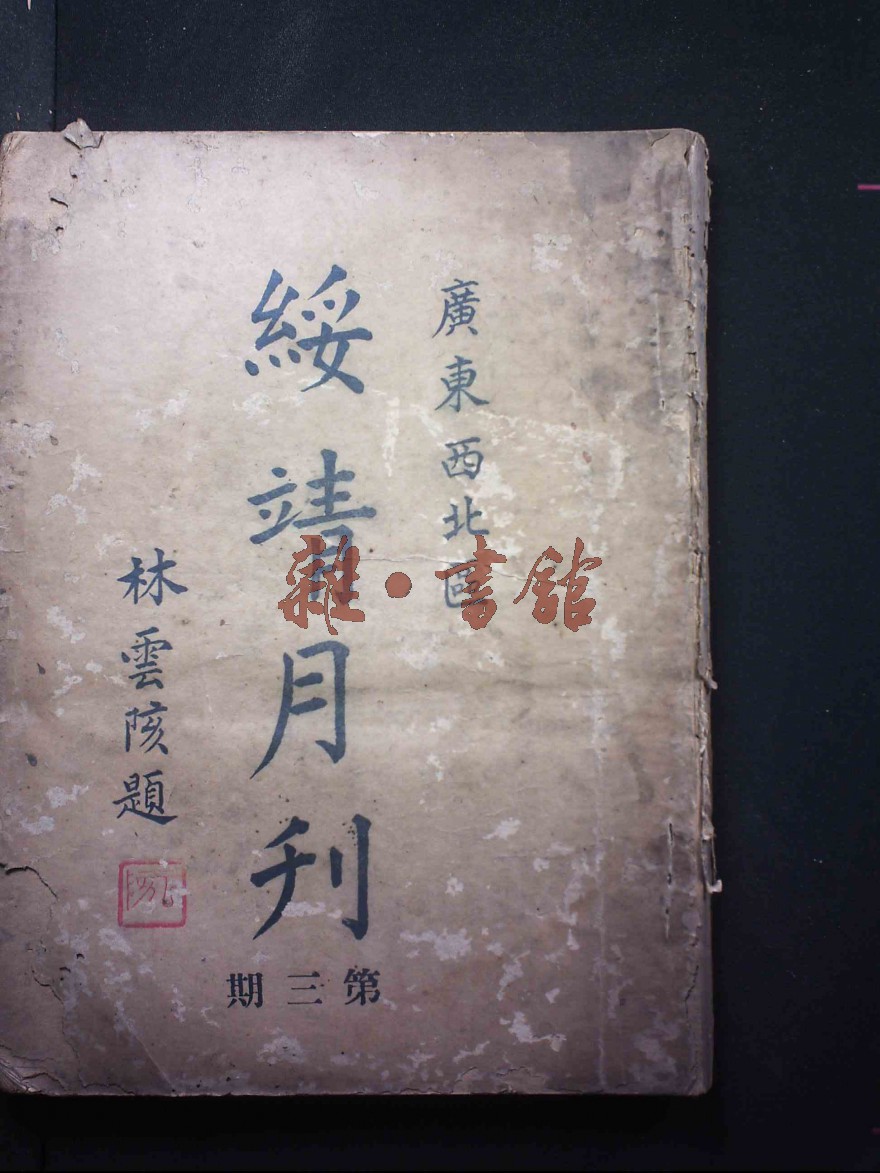 廣東西北區
綏靖月刊
林雲陔題
第三期
雜·書館